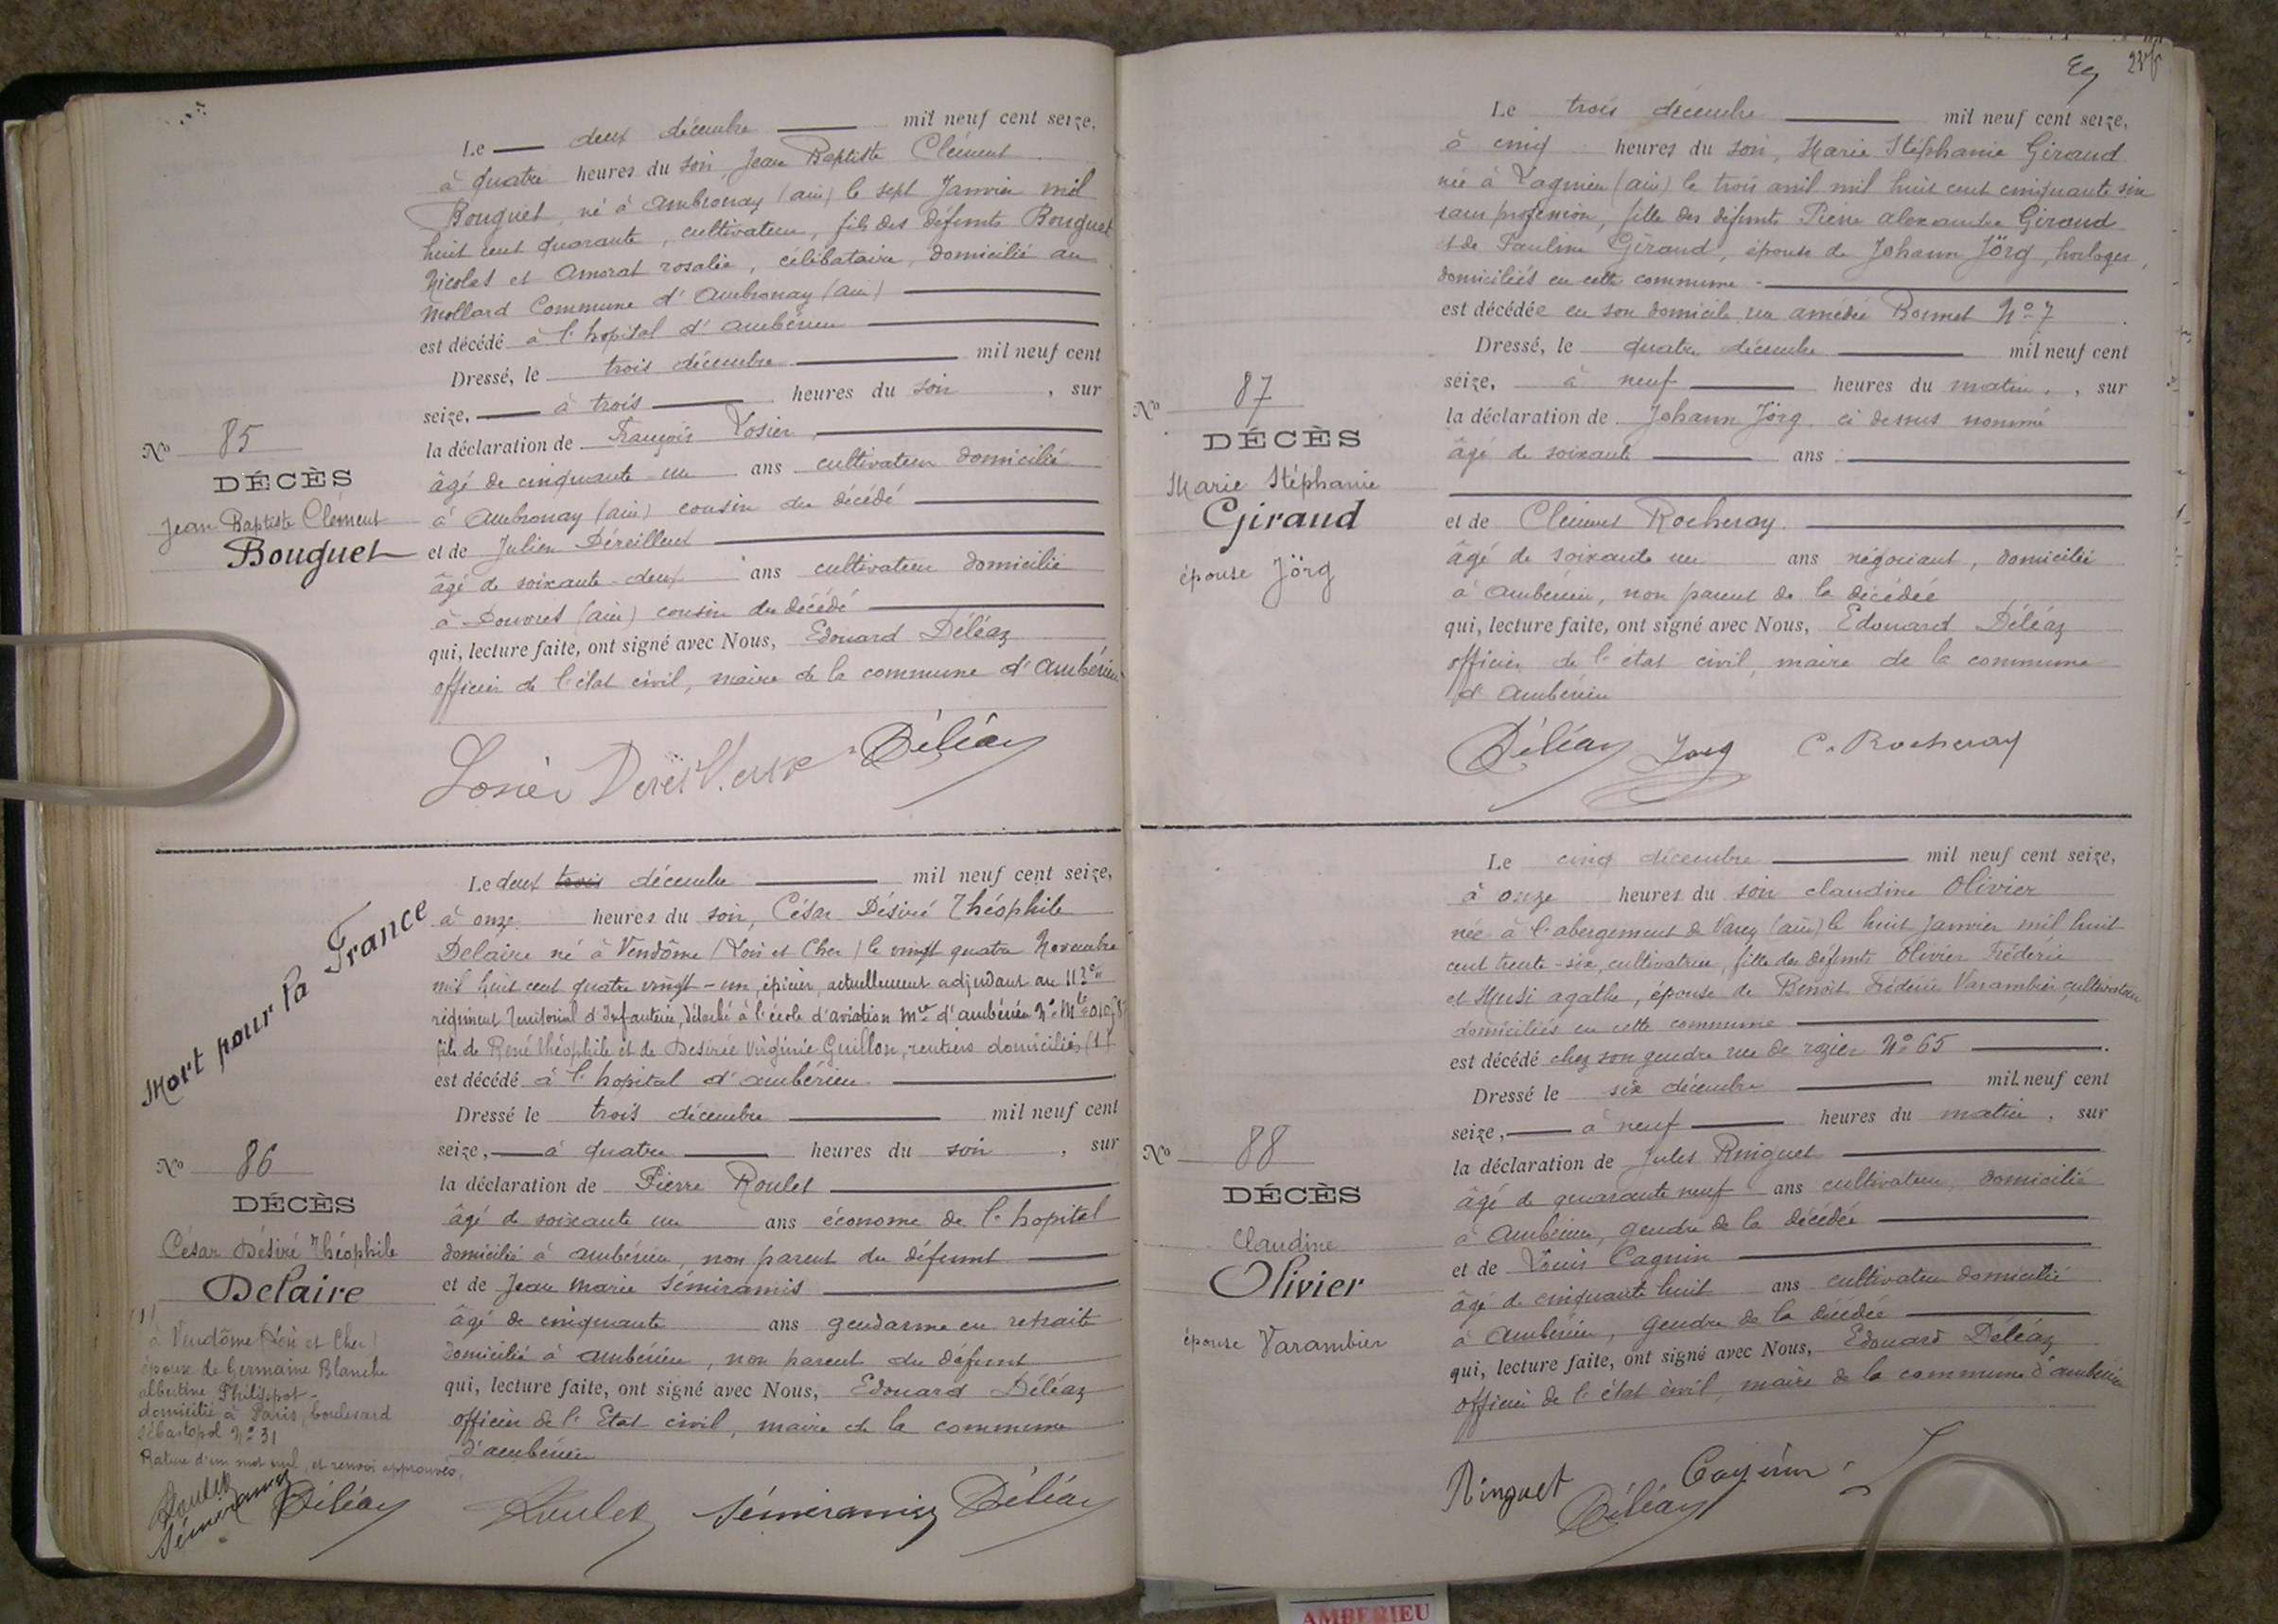 Le deux décembre mil neuf cent seize,
à quatre heures du soir, Jean Baptiste Clément
Bouguet, né à Ambronay (ain) le sept Janvier mil
huit cent quarante, cultivateur, fils des défunts Bouguet
Nicolas et Amorat rosalie, célibataire, domicilié au
Mollard Commune d'Ambronay (ain)
est décédé à l'hopital d'ambérieu
Dressé, le trois décembre mil neuf cent
seize, à trois heures du soir, sur
la déclaration de François Losier,
âgé de cinquante-un ans cultivateur domicilié
à Ambronay (ain) cousin du décédé
et de Julien Déreilleux
âgé de soixante-deux ans cultivateur domicilié
à Douvres (ain) cousin du décédé
qui, lecture faite, ont signé avec Nous, Edouard Déléaz
officier de l'état civil, maire de la commune d'ambérieu
Déléaz
No 85
DÉCÈS
Jean Baptiste Clément
Bouguet
Le deux trois décembre mil neuf cent seize,
à onze heures du soir, César Désiré Théophile
Delaire né à Vendôme (Loir et Cher) le vingt quatre Novembre
mil huit cent quatre vingt-un, épicier, actuellement adjudant au 113e
régiment Territorial d'Infanterie, détaché à l'école d'aviation mre d'ambérieu No Mle
fils de René théophile et de Desirée Virginie Guillon, rentiers domiciliés (1)
est décédé à l'hopital d'ambérieu
Dressé le trois décembre mil neuf cent
seize, à quatre heures du soir, sur
la déclaration de Pierre Roulet
âgé de soixante un ans économe de l'hopital
domicilié à ambérieu, non parent du défunt
et de Jean Marie Sémiramis
âgé de cinquante ans gendarme en retraite
domicilié à ambérieu, non parent du défunt
qui, lecture faite, ont signé avec Nous, Edouard Déléaz
officier de l'Etat civil, maire de la commune
d'ambérieu
Mort pour la France
No 86
DÉCÈS
César Désiré Théophile
Delaire
(1)
à Vendôme (Loir et Cher)
époux de Germaine Blanche
albertine Philippot -
domicilié à Paris, boulevard
sébastopol No 31
Rature d'un mot nul, et renvoi approuvés,
Roulet
Sémiramis
Déléaz
Roulet Sémiramis Déléaz
Le trois décembre mil neuf cent seize,
à cinq heures du soir, Marie Stéphanie Giraud
née à Lagnieu (ain) le trois avril mil huit cent cinquante six
sans profession, fille des défunts Pierre alexandre Giraud
et de Pauline Giraud, épouse de Johann Jörg, horloger,
domiciliés en cette commune -
est décédée en son domicile rue amédée Bonnet No 7
Dressé, le quatre décembre mil neuf cent
seize, à neuf heures du matin, sur
la déclaration de Johann Jörg ci dessus nommé
âgé de soixante ans
et de Clément Rocheray
âgé de soixante un ans négociant, domicilié
à ambérieu, non parent de la décédée
qui, lecture faite, ont signé avec Nous, Edouard Déléaz
officier de l'état civil, maire de la commune
d'ambérieu
Déléaz Jorg C. Rocheray
No 87
DÉCÈS
Marie Stéphanie
Giraud
épouse Jörg
Le cinq décembre mil neuf cent seize,
à onze heures du soir claudine Olivier
née à l'abergement de Varey (ain) le huit Janvier mil huit
cent trente-six, cultivatrice, fille des défunts Olivier Fréderic
et Musi agathe, épouse de Benoit Fréderic Varambier cultivateur
domiciliés en cette commune
est décédé chez son gendre rue de rozier No 65
Dressé le six décembre mil neuf cent
seize, à neuf heures du matin, sur
la déclaration de Jules Ringuet
âgé de quarante neuf ans cultivateur, domicilié
à Ambérieu, gendre de la décédée
et de Louis Cagnin
âgé de cinquante huit ans cultivateur domicilié
à Ambérieu, gendre de la décédée
qui, lecture faite, ont signé avec Nous, Edouard Déléaz
officier de l'état civil, maire de la commune d'ambérieu
Ringuet Cagnin
Déléaz
No 88
DÉCÈS
Claudine
Olivier
épouse Varambier
AMBERIEU